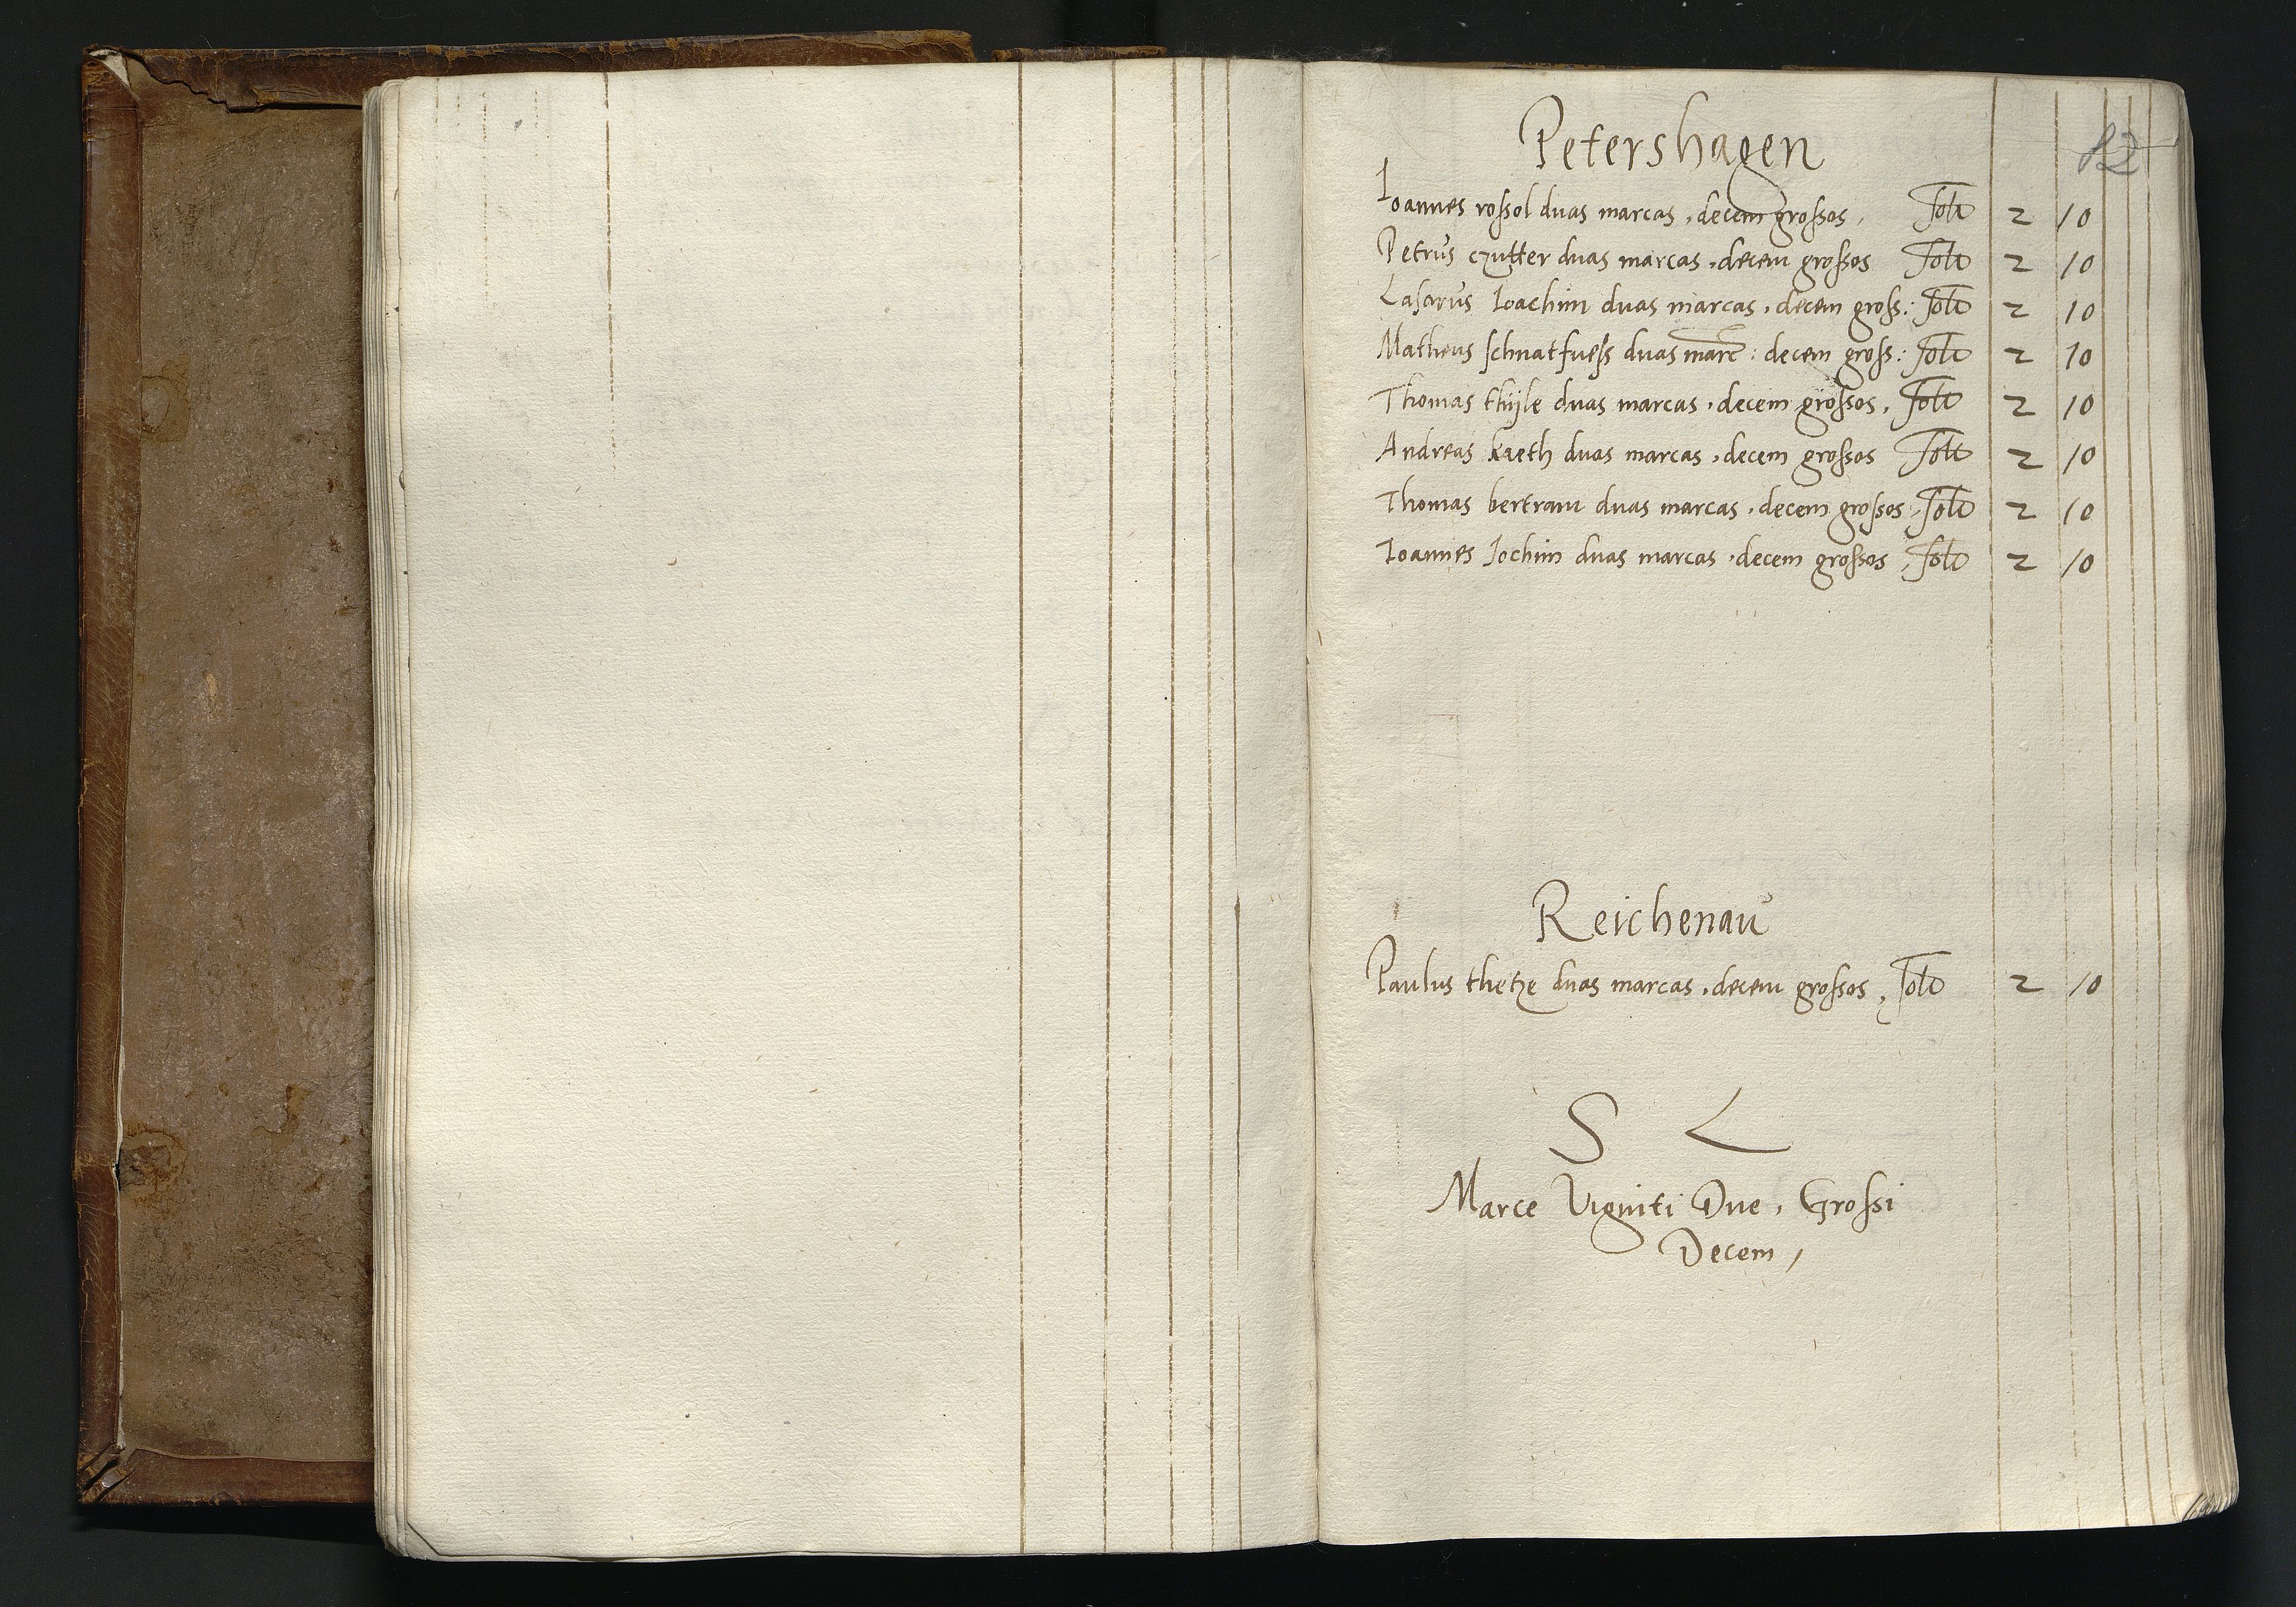 82
Petershagen
Ioannes rossol duas marcas, decem grossos, solt 2 10
Petrus czutter duas marcas, decem grossos solt 2 10
Lasarus Ioachim duas marcas, decem gross: solt 2 10
Matheus schnatfuess duas marc: decem gross: solt 2 10
Thomas thijle duas marcas, decem grossos, solt 2 10
Andreas kaeth duas marcas, decem grossos solt 2 10
Thomas bertram duas marcas, decem grossos, solt 2 10
Ioannes Iochim duas marcas, decem grossos, solt 2 10
Reichenau
Paulus thetze duas marcas, decem grossos, solt 2 10
S L
Marce Viginti Due, Grossi
Decem,